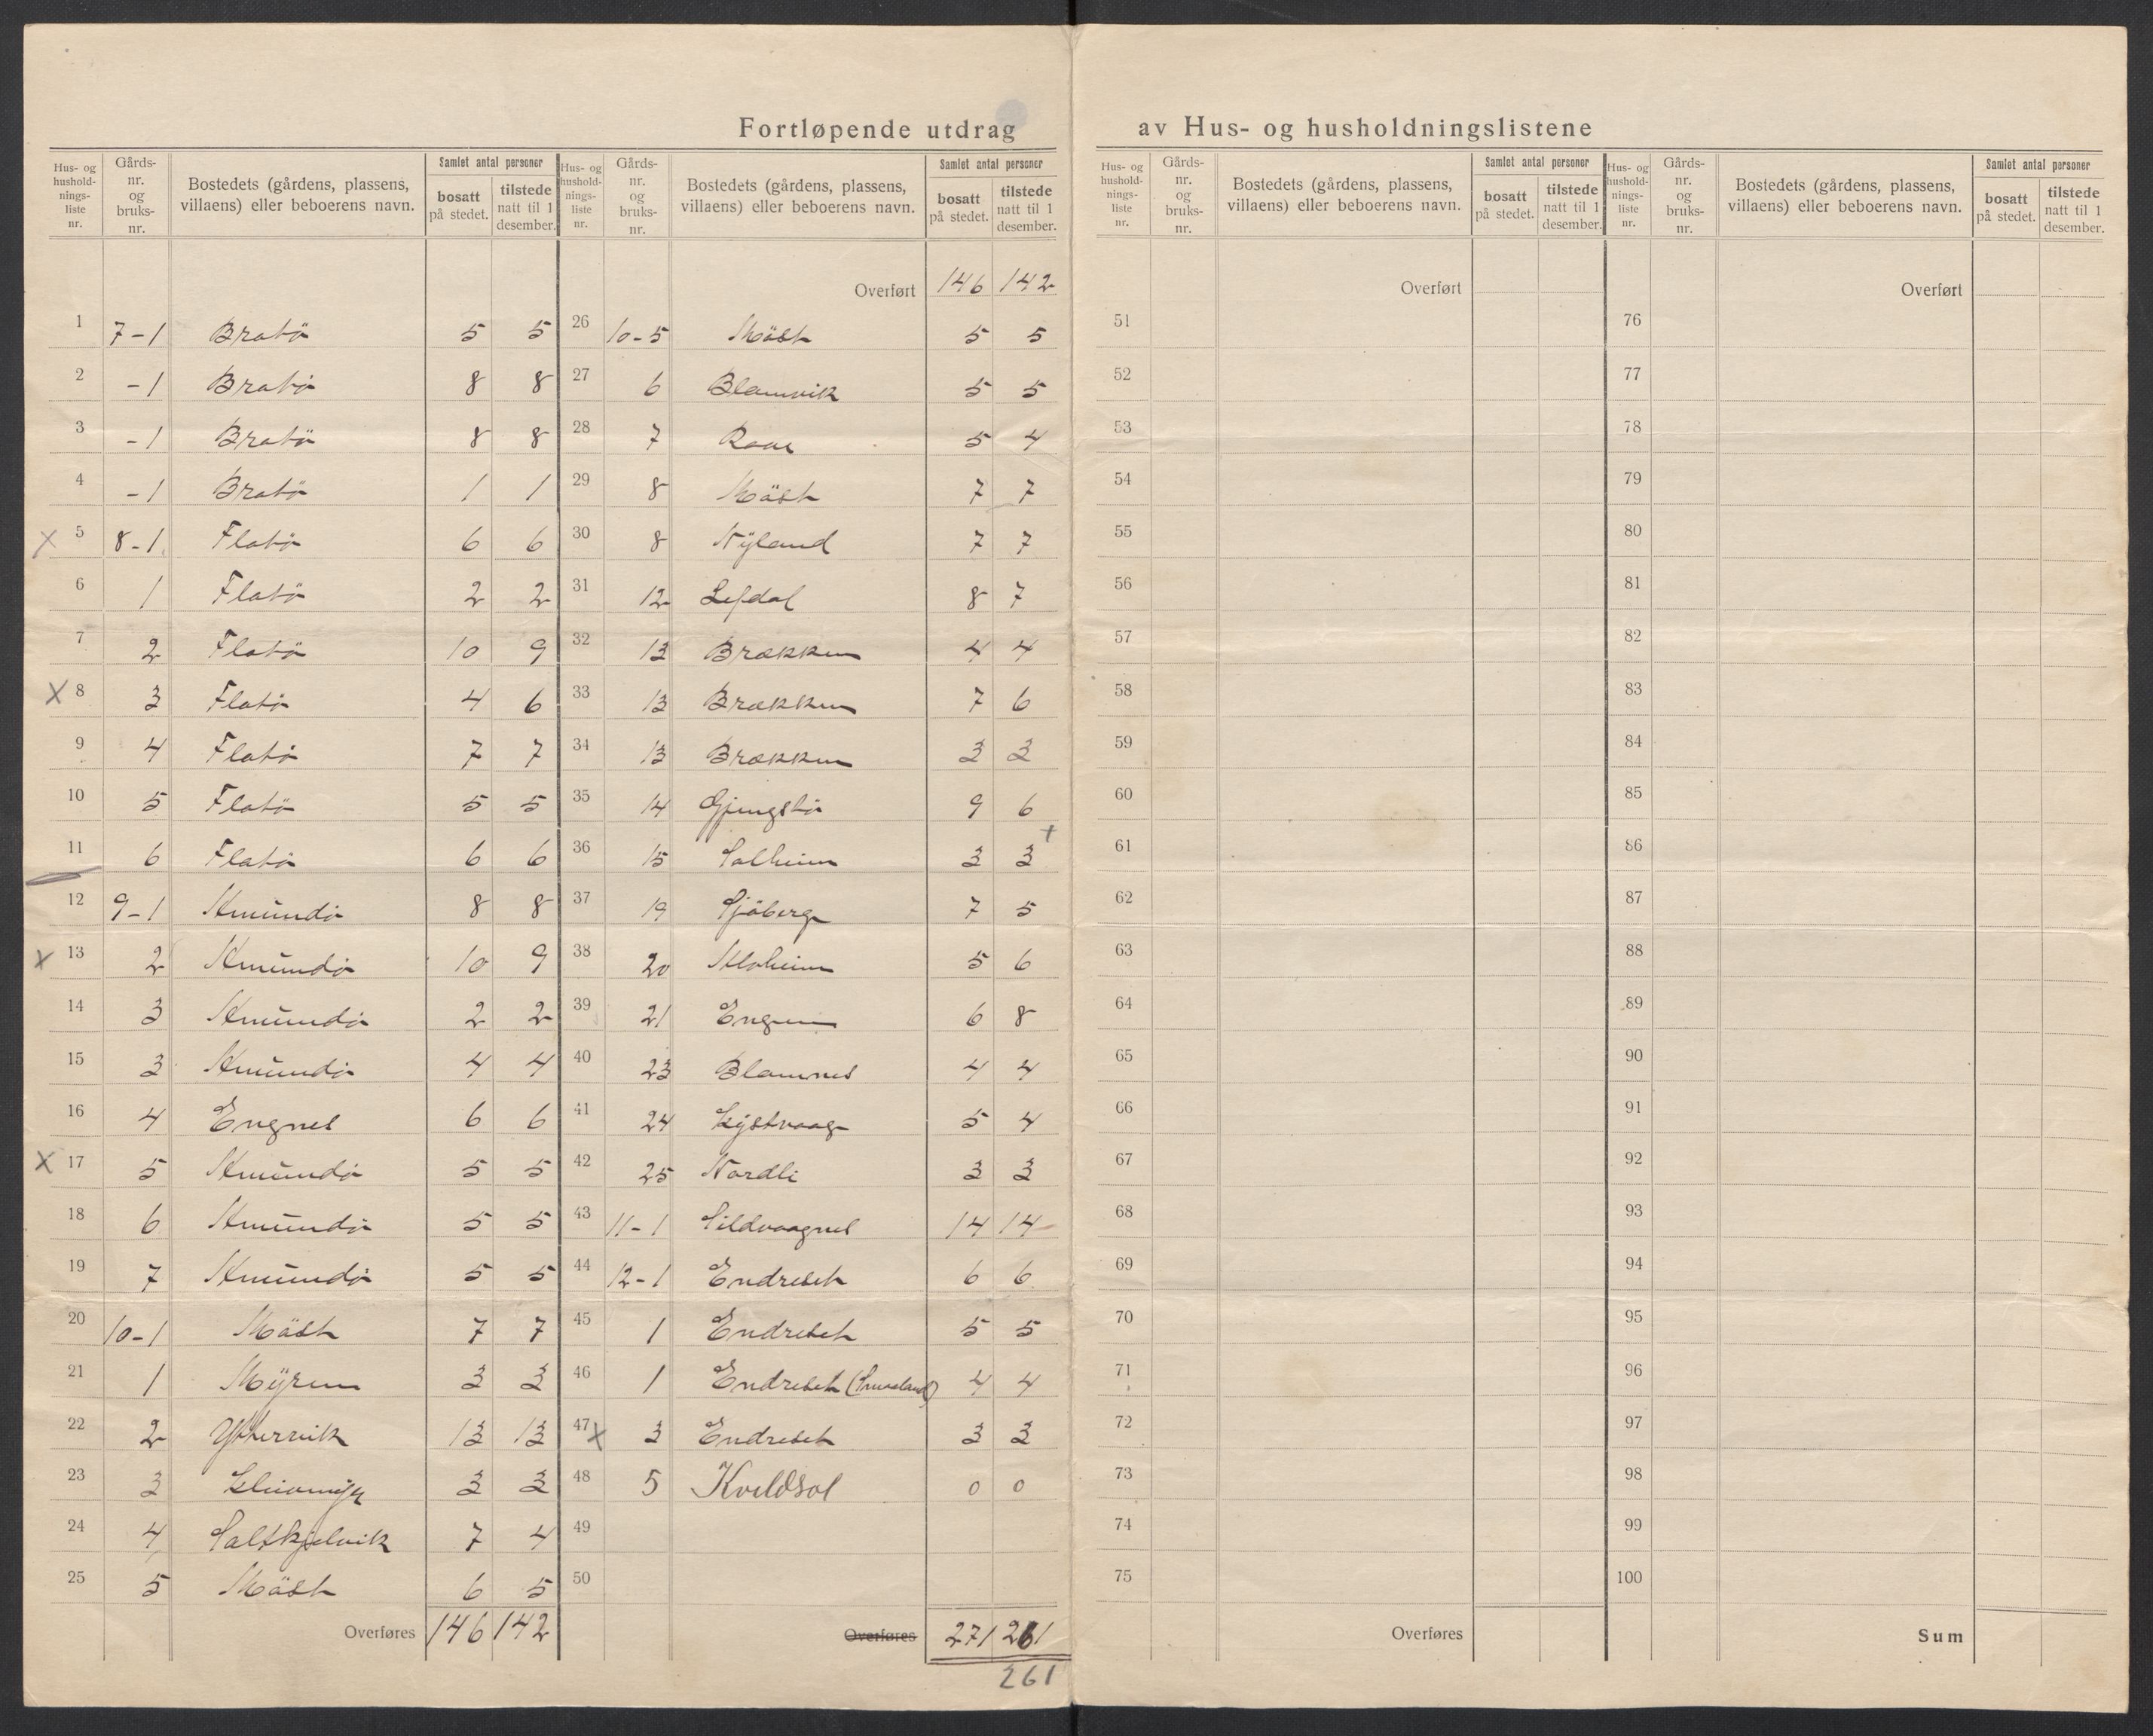 Fortløpende utdrag av Hus- og husholdningslistene
Hus- og hushold-nings-liste nr. Gårds-nr. og bruks-nr. Bostedets (gårdens, plassens, villaens) eller beboerens navn. Samlet antal personer bosatt på stedet. tilstede natt til 1 desember.
1 7-1 Bratø 5 5
2 -1 Bratø 8 8
3 -1 Bratø 8 8
4 -1 Bratø 1 1
X 5 8-1 Flatø 6 6
6 1 Flatø 2 2
7 2 Flatø 10 9
X 8 3 Flatø 4 6
9 4 Flatø 7 7
10 5 Flatø 5 5
11 6 Flatø 6 6
12 9-1 Amundø 8 8
X 13 2 Amundø 10 9
14 3 Amundø 2 2
15 3 Amundø 4 4
16 4 Engnes 6 6
X 17 5 Amundø 5 5
18 6 Amundø 5 5
19 7 Amundø 5 5
20 10-1 Mäst 7 7
21 1 Myren 3 3
22 2 Yttervik 13 13
23 3 3 3
24 4 Saltkjelvik 7 4
25 5 Mäst 6 5
Overføres 146 142
Hus- og hushold-nings-liste nr. Gårds-nr. og bruks-nr. Bostedets (gårdens, plassens, villaens) eller beboerens navn. Samlet antal personer bosatt på stedet. tilstede natt til 1 desember.
Overført 146 142
26 10-5 Mäst 5 5
27 6 Blamvik 5 5
28 7 5 4
29 8 Mäst 7 7
30 8 Nyland 7 7
31 12 Lefdal 8 7
32 13 Brækken 4 4
33 13 Brækken 7 6
34 13 Brækken 3 3
35 14 Gjengstø 9 6
36 15 Solheim 3 3 +
37 19 Sjøberg 7 5
38 20 Moheim 5 6
39 21 Engen 6 8
40 23 Blamnes 4 4
41 24 Lystvaag 5 4
42 25 Nordli 3 3
43 11-1 Sildvaagnes 14 14
44 12-1 Endreset 6 6
45 1 Endreset 5 5
46 1 Endreset (Smaaland) 4 4
47 X 3 Endreset 3 3
48 5 Kveldsol 0 0
49
50
Overføres 271 261
261
Hus- og hushold-nings-liste nr. Gårds-nr. og bruks-nr. Bostedets (gårdens, plassens, villaens) eller beboerens navn. Samlet antal personer bosatt på stedet. tilstede natt til 1 desember.
Overført
51
52
53
54
55
56
57
58
59
60
61
62
63
64
65
66
67
68
69
70
71
72
73
74
75
Overføres
Hus- og hushold-nings-liste nr. Gårds-nr. og bruks-nr. Bostedets (gårdens, plassens, villaens) eller beboerens navn. Samlet antal personer bosatt på stedet. tilstede natt til 1 desember.
Overført
76
77
78
79
80
81
82
83
84
85
86
87
88
89
90
91
92
93
94
95
96
97
98
99
100
Sum